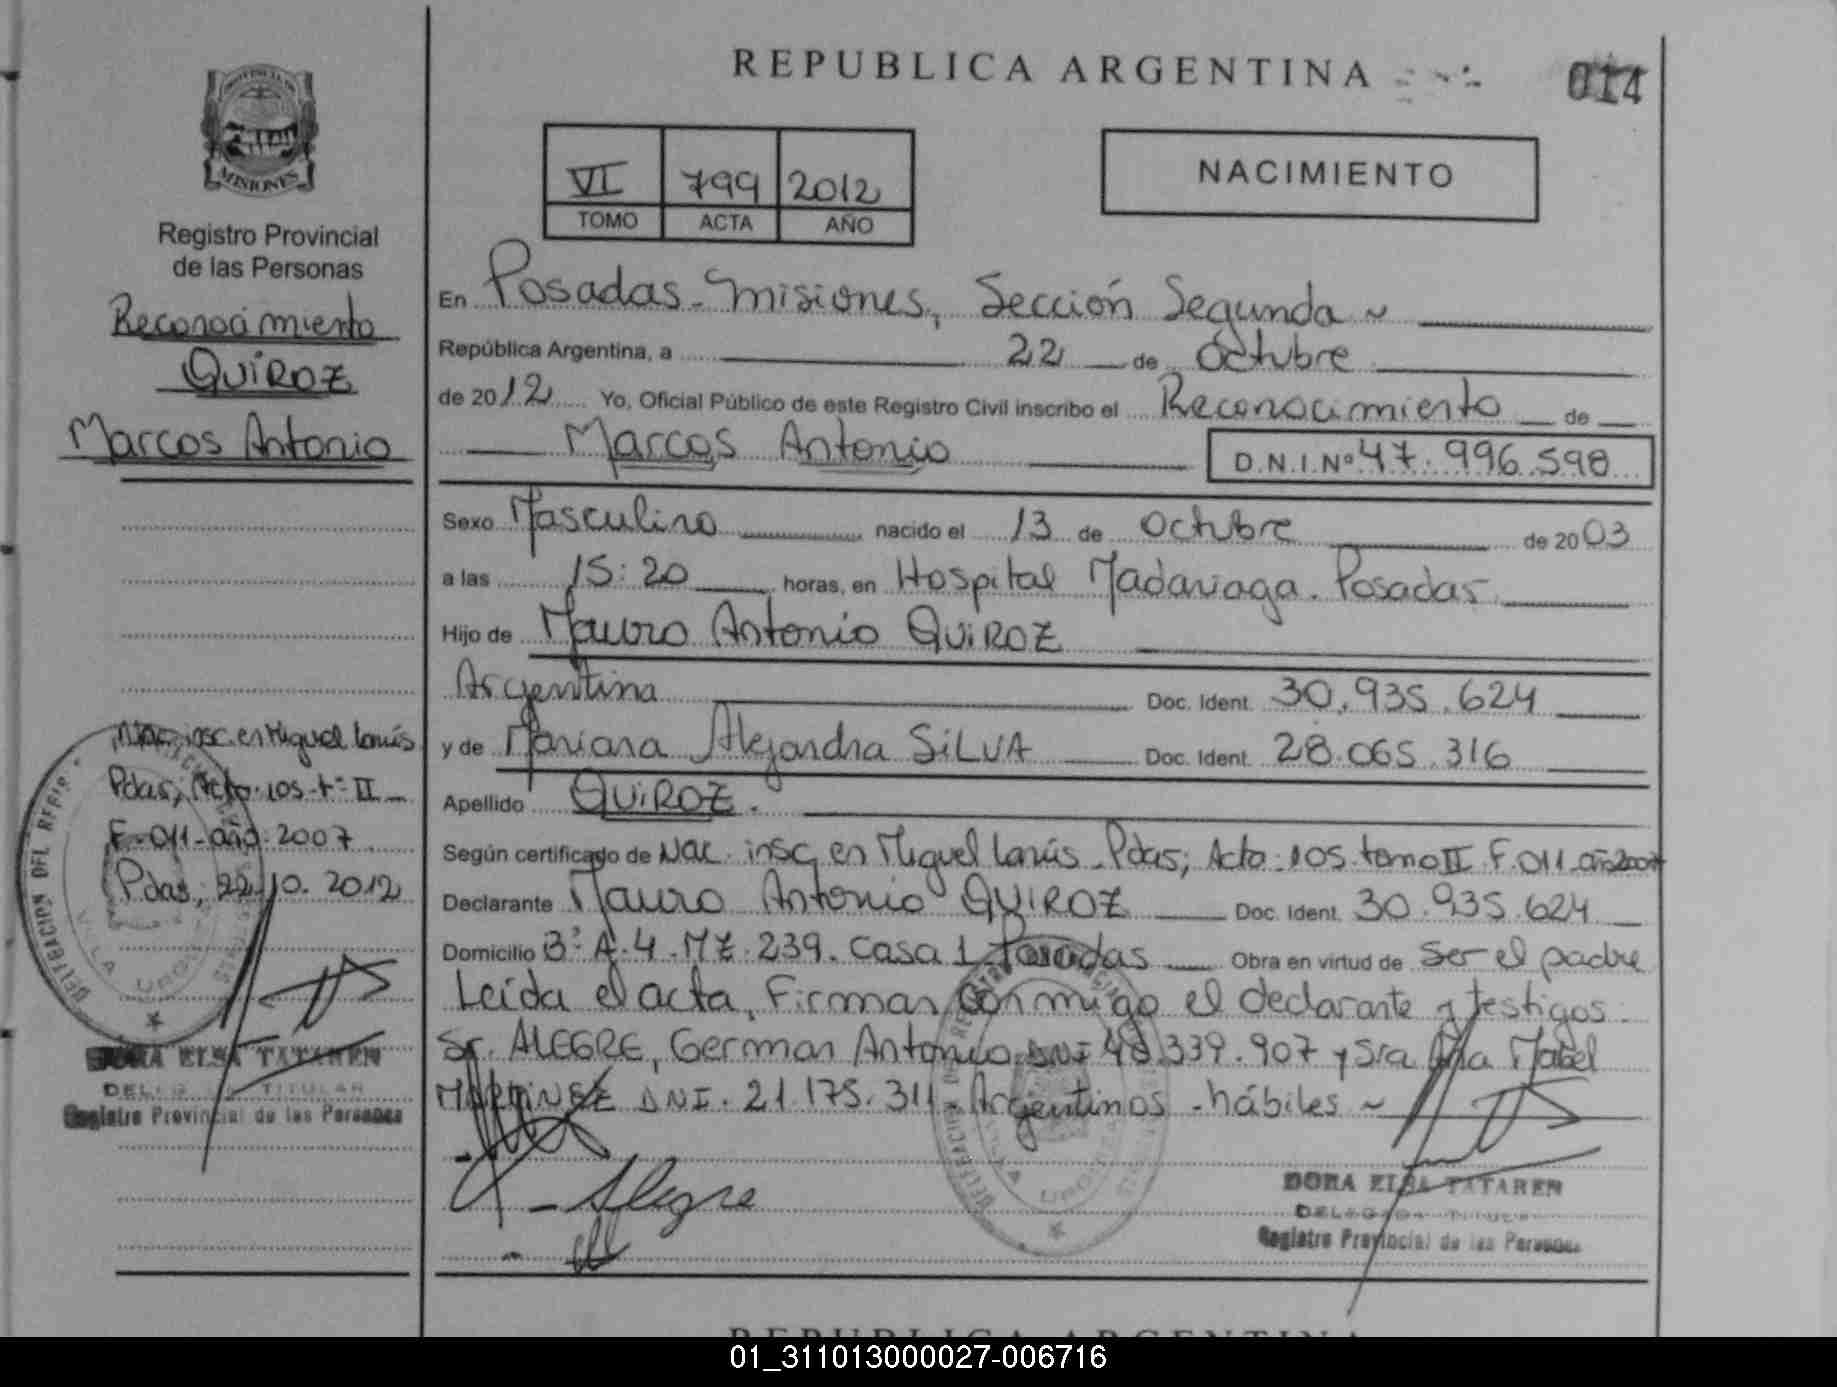 REPUBLICA ARGENTINA
014
PROVINCIA DE
MISIONES
Registro Provincial
de las Personas
Reconocimiento
QUIROZ
Marcos Antonio
Nac. insc. en Miguel Lanús
Pdas; Acta: 105 - t = II -
F - 011 - año: 2007
Pdas; 22.10.2012
DELEGACION DEL REGIS
VILLA URQUIZA
DORA ELSA TATAREN
DELEGADA TITULAR
Registro Provincial de las Personas
VI 799 2012
TOMO ACTA AÑO
NACIMIENTO
En Posadas - Misiones, Sección Segunda ~
República Argentina, a 22 de Octubre
de 2012 Yo, Oficial Público de este Registro Civil inscribo el Reconocimiento de
Marcos Antonio D.N.I.Nº 47.996.598
Sexo Masculino nacido el 13 de Octubre de 2003
a las 15:20 horas, en Hospital Madariaga. Posadas
Hijo de Mauro Antonio QUIROZ
Argentina Doc. Ident. 30.935.624
y de Mariana Alejandra SILVA Doc. Ident. 28.065.316
Apellido QUIROZ.
Según certificado de Nac. insc en Miguel Lanús - Pdas; Acta: 105 tomo II F. 011 año 2007
Declarante Mauro Antonio QUIROZ Doc. Ident. 30.935.624
Domicilio Bº A.4. MZ. 239. Casa 1 Posadas Obra en virtud de ser el padre
Leida el acta, Firman conmigo el declarante y testigos.
Sr. ALEGRE, German Antonio DNI 48.339.907 y Sra Ana Mabel
MARTINEZ DNI. 21.175.311 Argentinos - hábiles ~
Alegre
DELEGACION DE REGISTRO
VILLA URQUIZA
DORA ELSA TATAREN
DELEGADA TITULAR
Registro Provincial de las Personas
REPUBLICA ARGENTINA
01_311013000027-006716